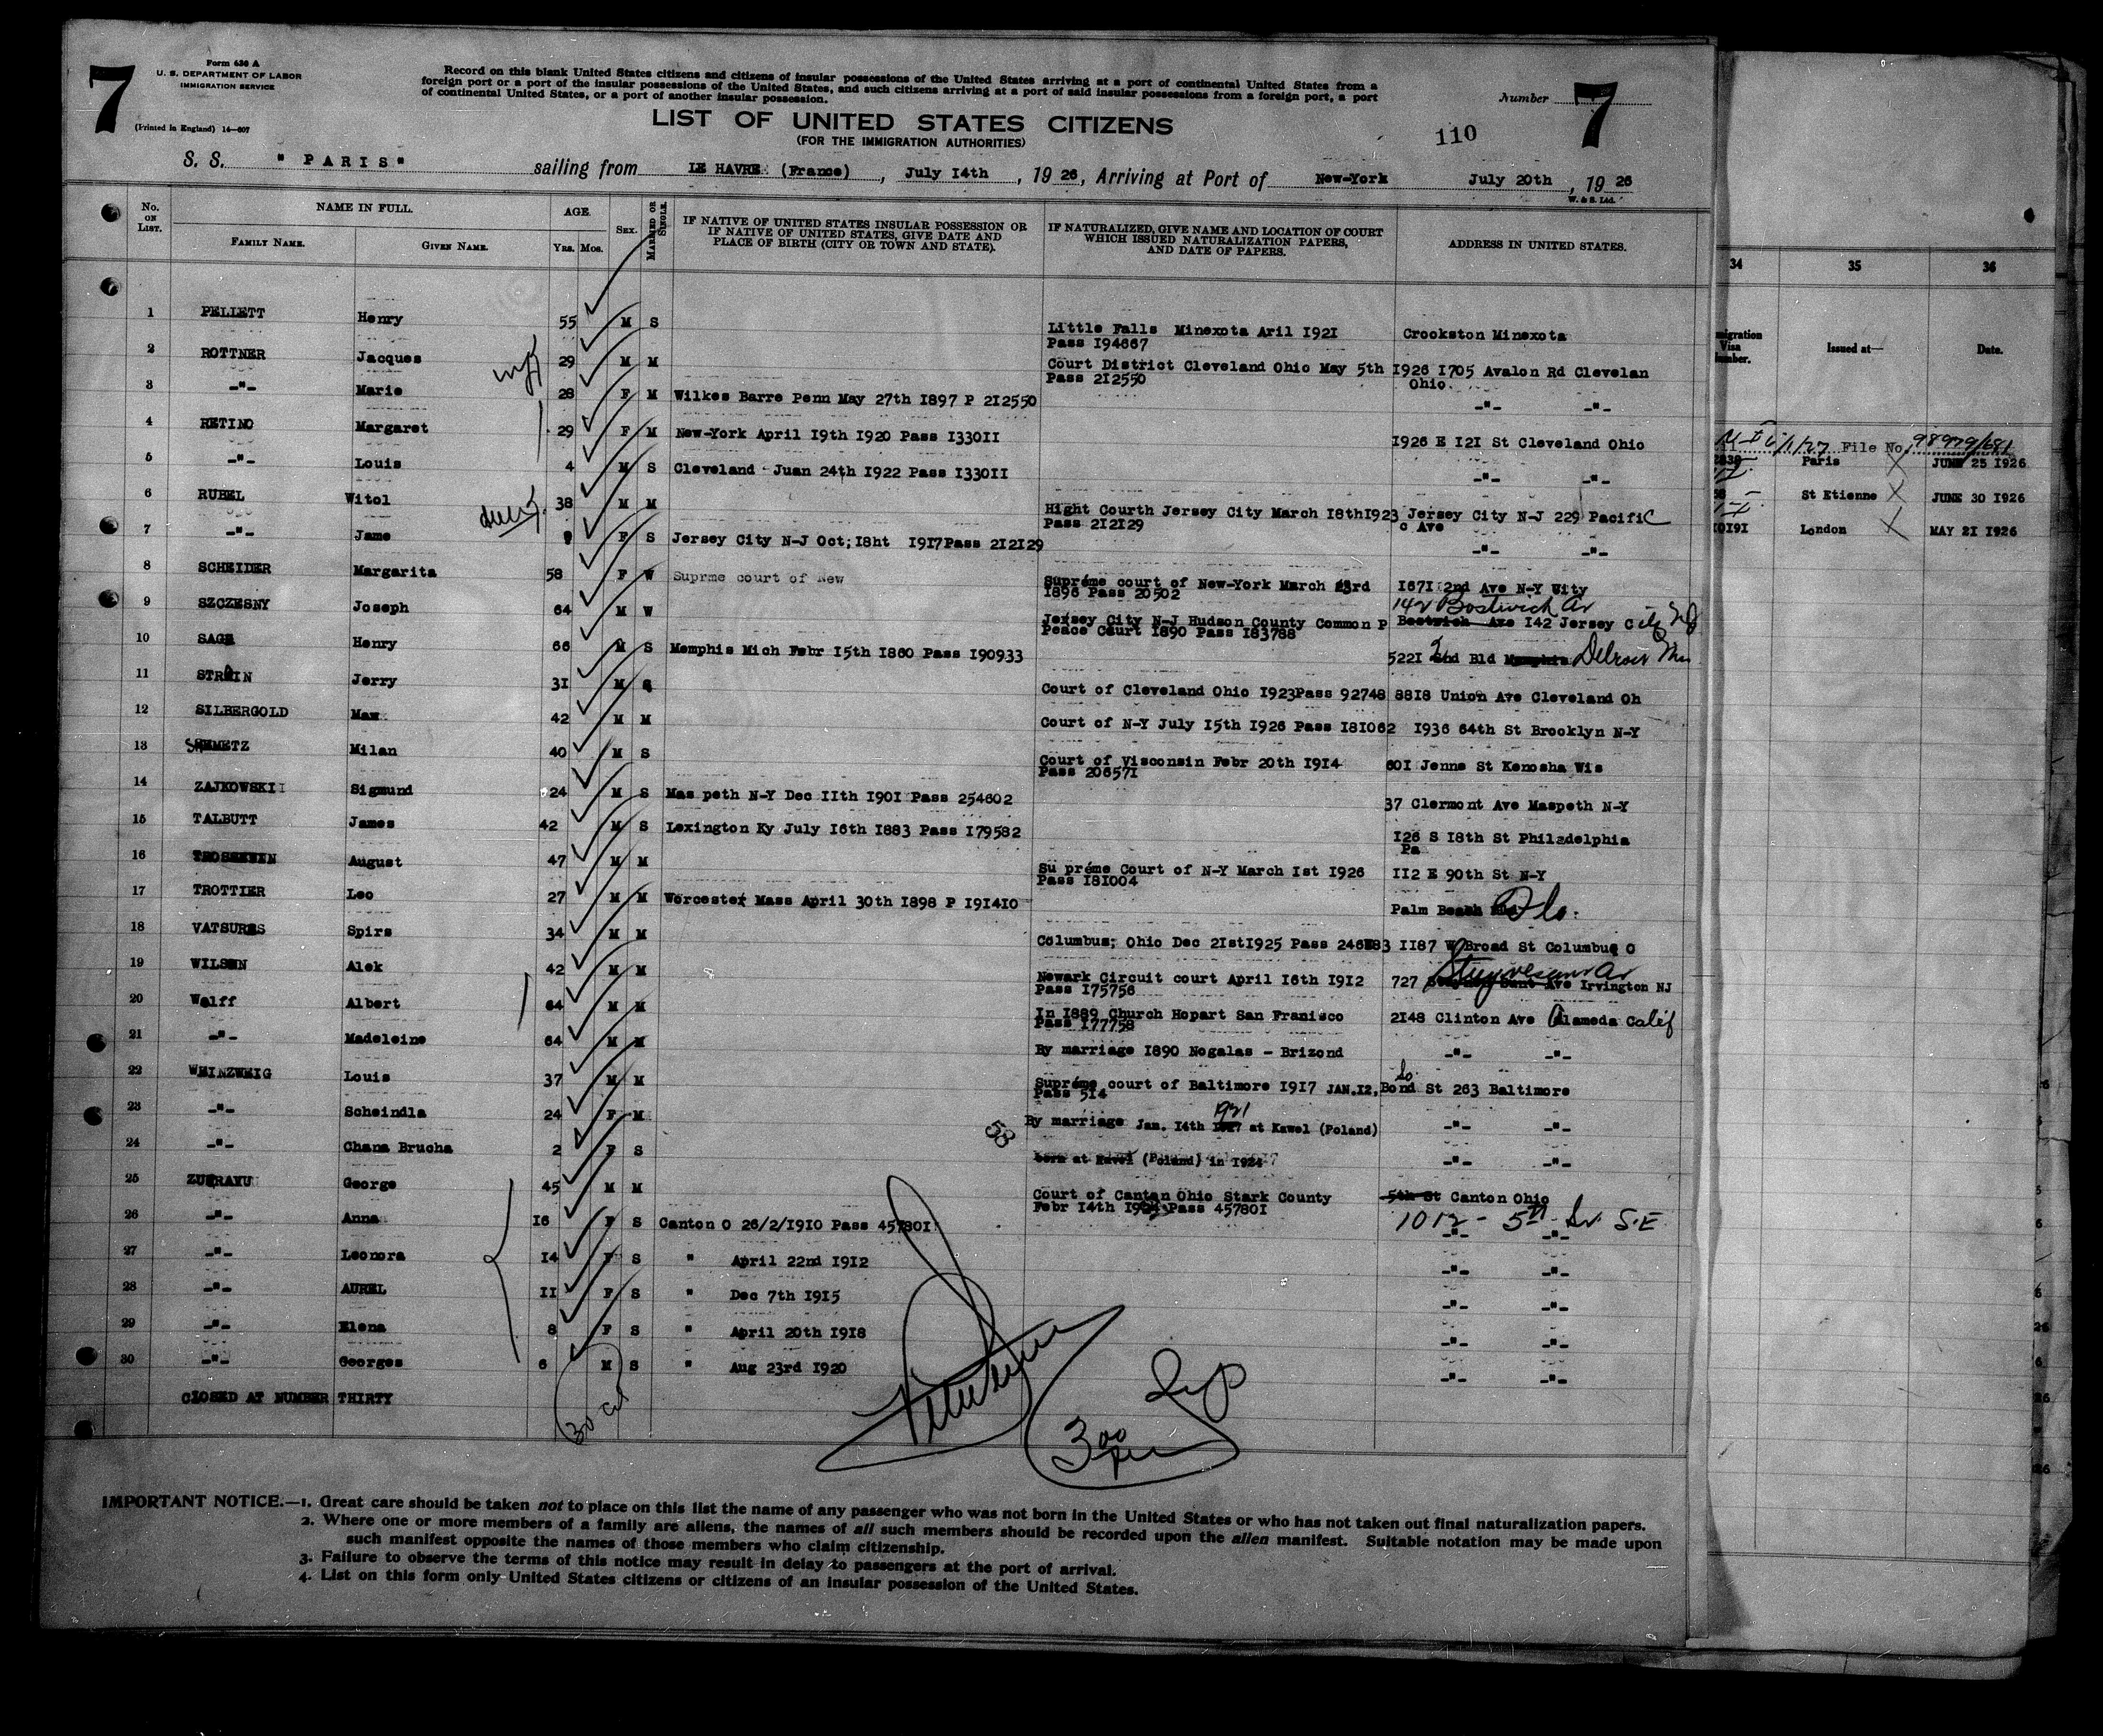 7
Form 630 A
U. S. DEPARTMENT OF LABOR
IMMIGRATION SERVICE
(Printed in England) 14—607
Record on this blank United States citizens and citizens of insular possessions of the United States arriving at a port of continental United States from a
foreign port or a port of the insular possessions of the United States, and such citizens arriving at a port of said insular possessions from a foreign port, a port
of continental United States, or a port of another insular possession.
Number 7
LIST OF UNITED STATES CITIZENS
(FOR THE IMMIGRATION AUTHORITIES)
110
S. S. " PARIS" sailing from LE HAVRE (France), July 14th, 1926, Arriving at Port of New-York July 20th, 1926
W. & S. Ltd.
No. ON LIST. NAME IN FULL. AGE. SEX. MARRIED OR SINGLE. IF NATIVE OF UNITED STATES INSULAR POSSESSION OR IF NATIVE OF UNITED STATES, GIVE DATE AND PLACE OF BIRTH (CITY OR TOWN AND STATE). IF NATURALIZED, GIVE NAME AND LOCATION OF COURT WHICH ISSUED NATURALIZATION PAPERS, AND DATE OF PAPERS. ADDRESS IN UNITED STATES.
FAMILY NAME. GIVEN NAME. YRS. MOS.
1 PELLETT Henry 55 M S Little Falls Minexota Aril 1921 Pass 194667 Crookston Minexota
2 ROTTNER Jacques 29 M M Court District Cleveland Ohio May 5th 1926 Pass 212550 1705 Avalon Rd Clevelan Ohio
3 -"- Marie 28 F M Wilkes Barre Penn May 27th 1897 P 212550 -"- -"-
4 RETINO Margaret 29 F M New-York April 19th 1920 Pass 133011 1926 E 121 St Cleveland Ohio
5 -"- Louis 4 M S Cleveland - Juan 24th 1922 Pass 133011 -"- -"-
6 RUBEL Witol 38 M M Hight Courth Jersey City March 18th1923 Pass 212129 Jersey City N-J 229 Pacific c Ave
7 -"- Jame F S Jersey City N-J Oct;18ht 1917Pass 212129 -"- -"-
8 SCHEIDER Margarita 58 F W Suprme court of New Supréme court of New-York March 23rd 1896 Pass 20502 1671 2nd Ave N-Y Wity
9 SZCZESNY Joseph 64 M W Jersey City N-J Hudson County Common P Peace Court 1890 Pass 183788 142 Bostwich Av Bostwich Ave 142 Jersey City NJ
10 SAGE Henry 66 M S Memphis Mich Febr 15th 1860 Pass 190933 5221 2nd Bld Memphis Detroit
11 STRAIN Jerry 31 M S Court of Cleveland Ohio 1923Pass 92748 8818 Union Ave Cleveland Oh
12 SILBERGOLD Max 42 M M Court of N-Y July 15th 1926 Pass 181062 1936 64th St Brooklyn N-Y
13 SHEMETZ Milan 40 M S Court of Visconsin Febr 20th 1914 Pass 206571 601 Jenne St Kenosha Wis
14 ZAJKOWSKII Sigmund 24 M S Mas peth N-Y Dec 11th 1901 Pass 254602 37 Clermont Ave Maspeth N-Y
15 TALBUTT James 42 M S Lexington Ky July 16th 1883 Pass 179582 126 S 18th St Philadelphia Pa
16 August 47 M M Su préme Court of N-Y March 1st 1926 Pass 181004 112 E 90th St N-Y
17 TROTTIER Leo 27 M M Worcester Mass April 30th 1898 P 191410 Palm Beach Fla.
18 VATSURES Spirs 34 M M Columbus; Ohio Dec 21st1925 Pass 1187 W Broad St Columbus O
19 WILSON Alek 42 M M Newark Circuit court April 16th 1912 Pass 175756 727 Stuyvesant Av Irvington NJ
20 Wolff Albert 64 M M In 1889 Church Hopart San Franisco Pass 177758 2148 Clinton Ave Alameda Calif
21 -"- Madeleine 64 M M By marriage 1890 Nogalas - Brizond -"- -"-
22 WEINZWEIG Louis 37 M M Supréme court of Baltimore 1917 JAN.12, Pass 514 So. Bond St 263 Baltimore
23 -"- Scheindla 24 F M By marriage Jan. 14th 1921 at Kawel (Poland) -"- -"-
24 -"- Chana Brucha 2 F S born at Kavel (Poland) in 1924 -"- -"-
53
25 ZUGRAVU George 45 M M Court of Canton Ohio Stark County Febr 14th Pass 457801 5th St Canton Ohio
26 -"- Anna 16 F S Canton O 26/2/1910 Pass 457801 1012 - 5th St. S.E -"- -"-
27 -"- Leonora 14 F S " April 22nd 1912 -"- -"-
28 -"- AUREL 11 F S " Dec 7th 1915 -"- -"-
29 -"- Elena 8 F S " April 20th 1918 -"- -"-
30 -"- Georges 6 M S " Aug 23rd 1920 -"- -"-
CLOSED AT NUMBER THIRTY
30 cit
300
IMPORTANT NOTICE.—1. Great care should be taken not to place on this list the name of any passenger who was not born in the United States or who has not taken out final naturalization papers.
2. Where one or more members of a family are aliens, the names of all such members should be recorded upon the alien manifest. Suitable notation may be made upon
such manifest opposite the names of those members who claim citizenship.
3. Failure to observe the terms of this notice may result in delay to passengers at the port of arrival.
4. List on this form only United States citizens or citizens of an insular possession of the United States.
34 35 36
migration Visa Number. Issued at— Date.
6/1/27 File No. 98979/681
Paris X JUNE 25 1926
St Etienne X JUNE 30 1926
10191 London X MAY 21 1926